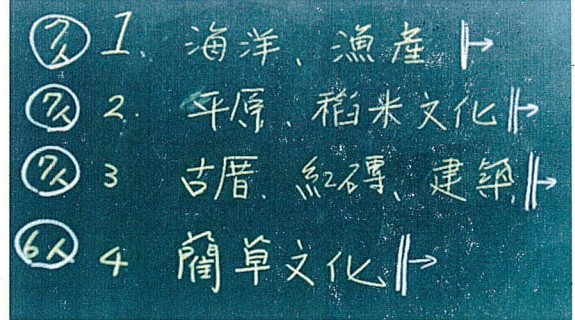 7人 1. 海洋、漁產
7人 2. 平原、稻米文化
7人 3 古厝、紅磚、建築
6人 4 藺草文化